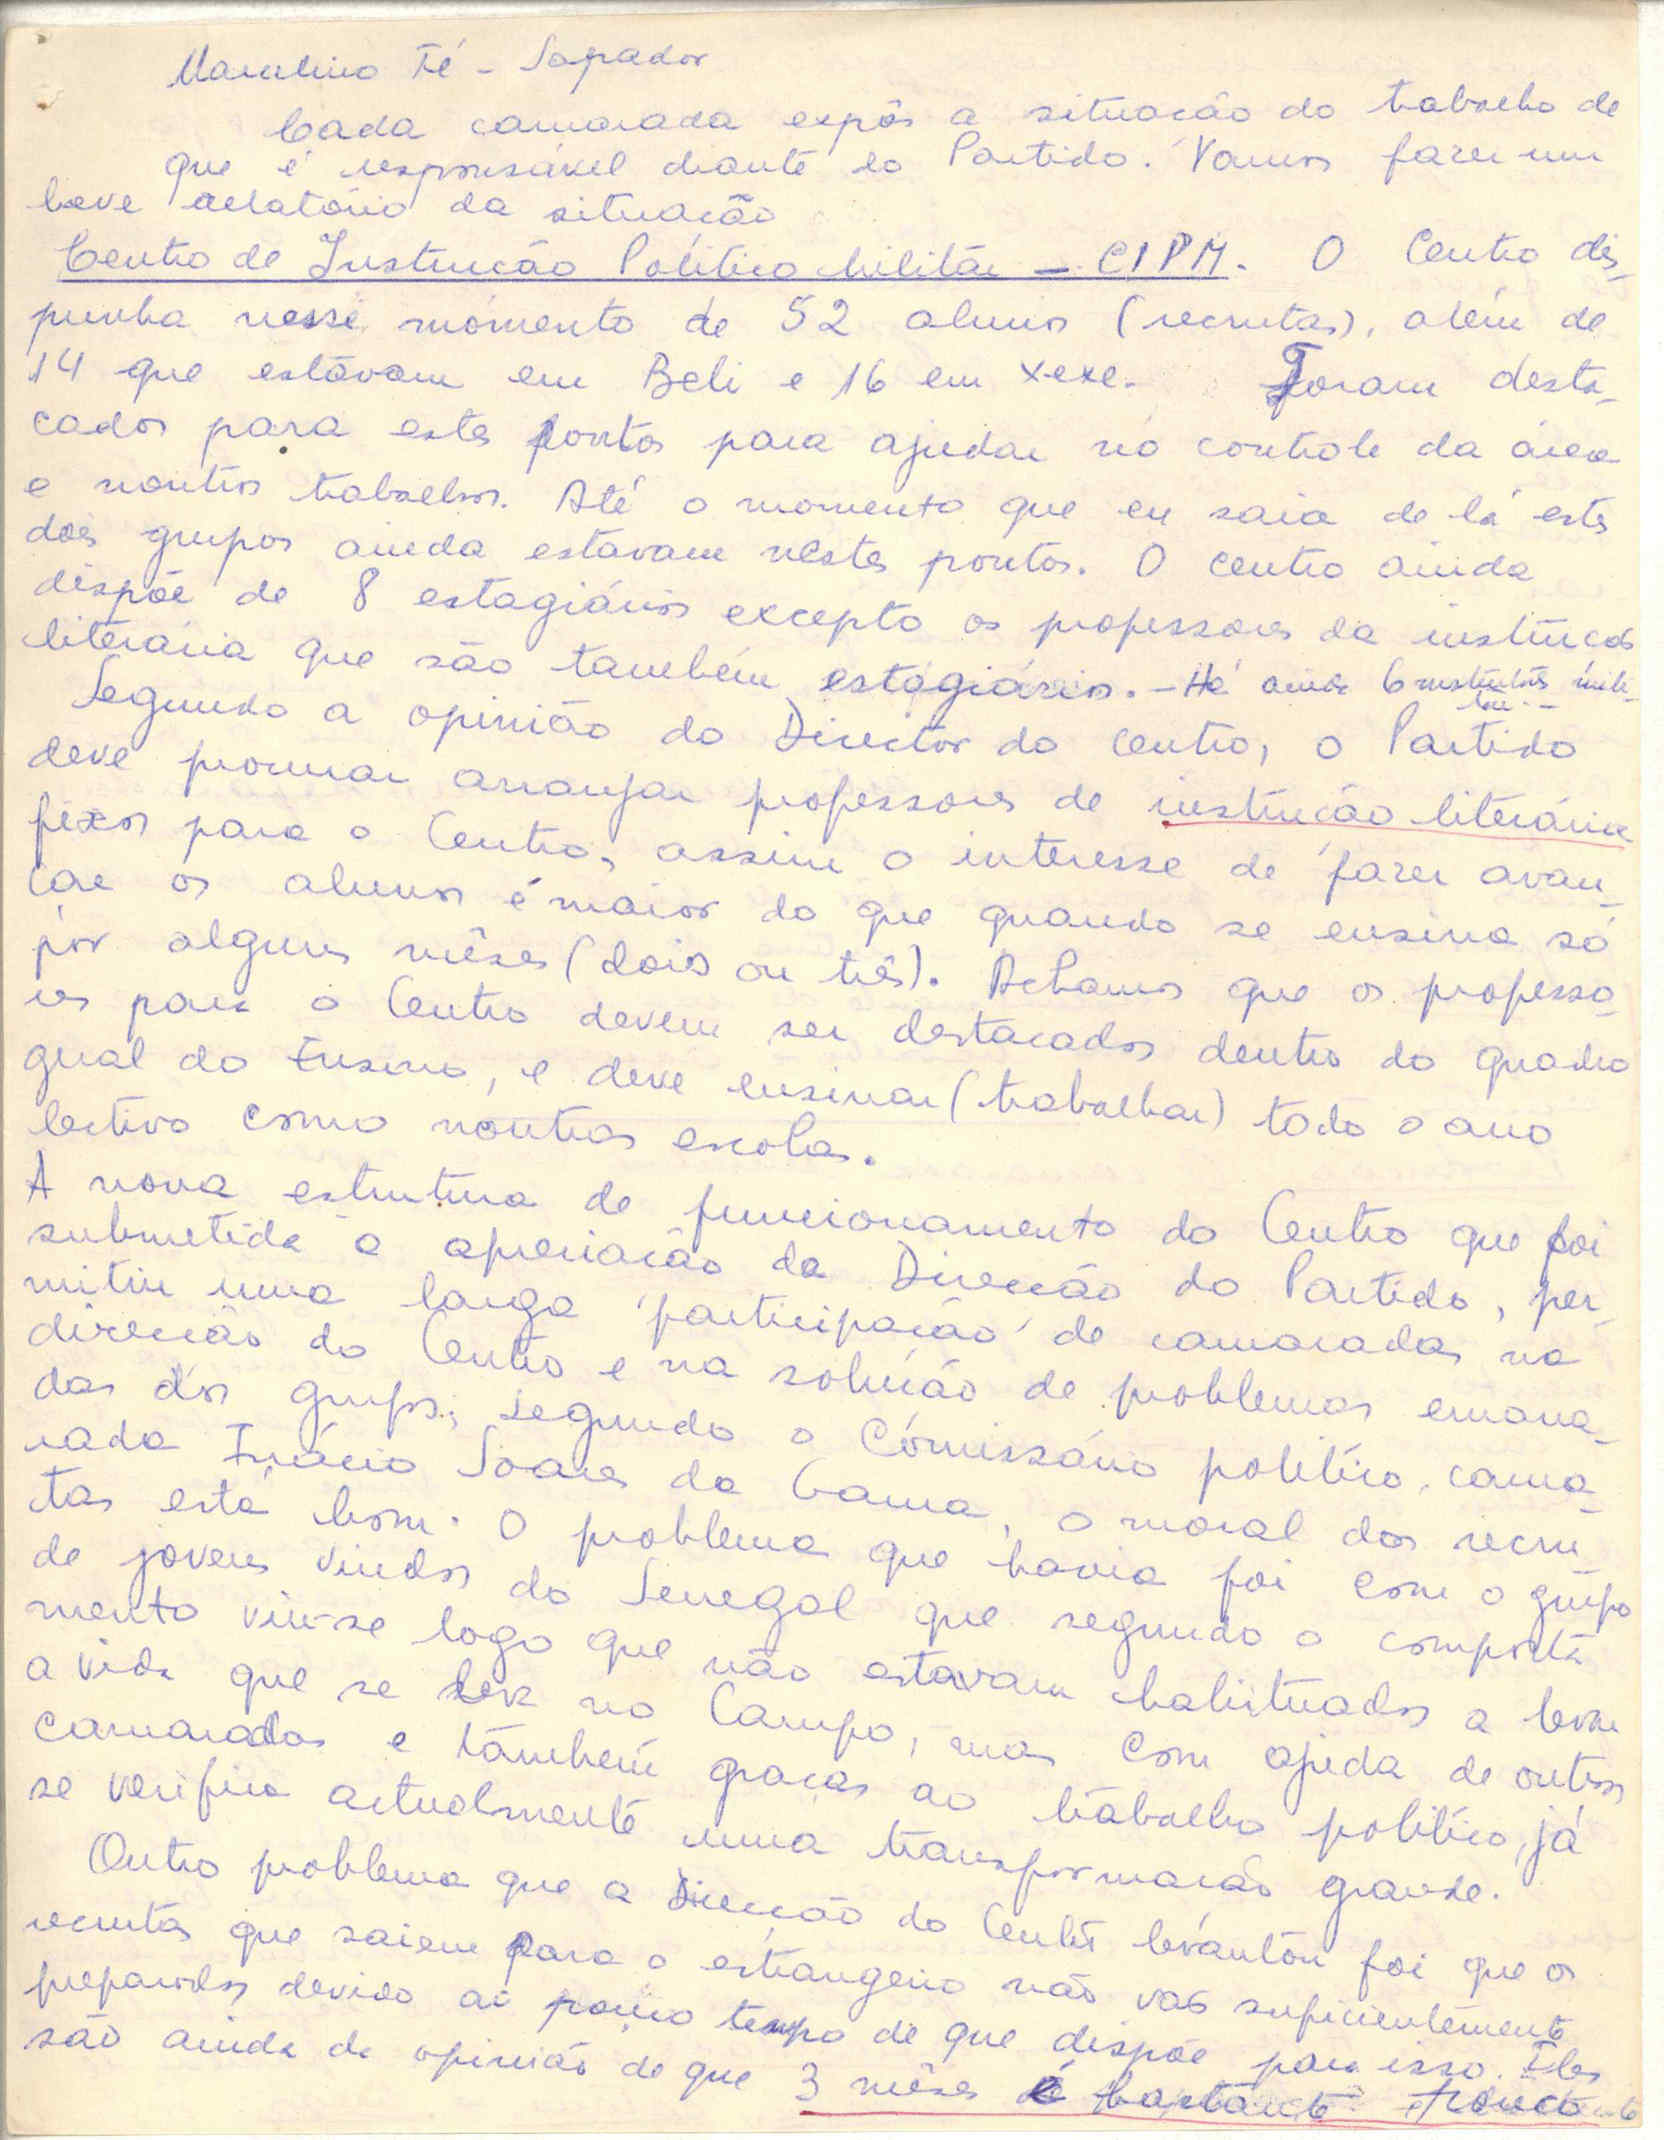 Marcelino Té - Sapador
Cada camarada expôs a situação do trabalho de
que é responsável diante do Partido. Vamos fazer um
breve relatório da situação
Centro de Instrução Político Militar - CIPM. O Centro dis-
punha nesse momento de 52 alunos (recrutas), além de
14 que estavam em Beli e 16 em Xexe. Foram desta-
cados para estes pontos para ajudar no controle da área
e noutros trabalhos. Até o momento que eu saia de lá estes
dois grupos ainda estavam nestes pontos. O centro ainda
dispõe de 8 estagiários excepto os professores da instrução
literária que são também estagiários. - Há ainda 6 instrutores mili-
tares. -
Segundo a opinião do Director do centro, o Partido
deve procurar arranjar professores de instrução literária
fixos para o Centro, assim o interesse de fazer avan-
çar os alunos é maior do que quando se ensina só
por alguns mêses (dois ou três). Achamos que os professo-
res para o Centro devem ser destacados dentro do quadro
geral do Ensino, e deve ensinar (trabalhar) todo o ano
lectivo como noutras escolas.
A nova estrutura de funcionamento do Centro que foi
submetida a apreciação da Direcção do Partido, per-
mitiu uma larga participação de camaradas na
direcção do Centro e na solução de problemas emana-
das dos grupos, segundo o Comissário político, cama-
rada Inácio Soares da Gama, o moral dos recru-
tas está bom. O problema que havia foi com o grupo
de jovens vindos do Senegal que segundo o comporta
mento viu-se logo que não estavam habituados a bem
a vida que se leva no Campo, mas com ajuda de outros
camaradas e também graças ao trabalho político, já
se verifica actualmente uma transformação grande.
Outro problema que a Direcção do Centro levantou foi que os
recrutas que saiem para o estrangeiro não vão suficientemente
preparados devido ao pouco tempo de que dispõe para isso. Eles
são ainda da opinião de que 3 mêses é bastante